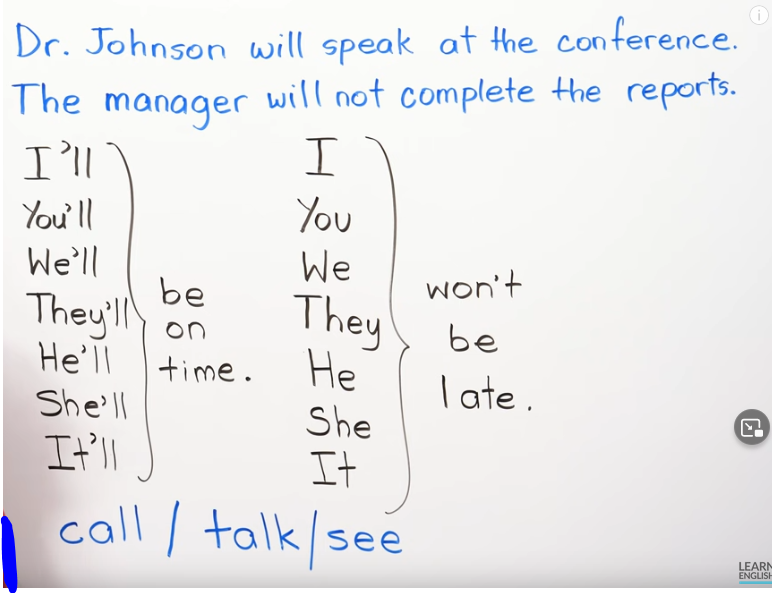 Dr. Johnson will speak at the conference.
The manager will not complete the reports.
I'll
You'll
We'll
They'll
He'll
She'll
It'll
be
on
time.
I
You
We
They
He
She
It
won't
be
late.
call / talk / see
LEARN
ENGLISH